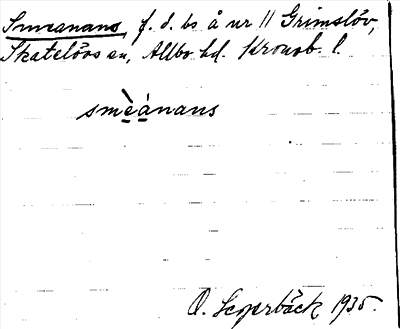 Smeanans, f. d. bs å nr 11 Grimslöv,
Skatelövs sn, Allbo hd. Kronob. l.
smèánans
O. 1935.